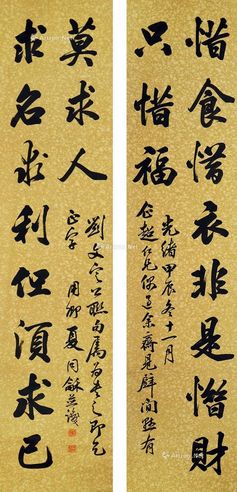 惜食惜衣非是惜財
只惜福
光緒甲辰冬十一月
仁兄
余齋見壁間懸有
莫求人
求名求利但須求己
劉文定公聯句属為書之即乞
正字
用卿夏同龢並識